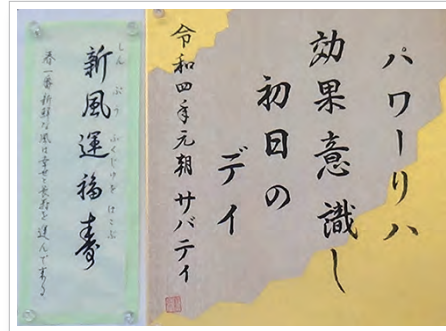 パワーリハ
効果意識し
初日の
デイ
令和四年元朝 サバテイ
しん ぷう ふくじゅを はこぶ
新風運福寿
春一番新鮮な風は幸せと長寿を運んで来る